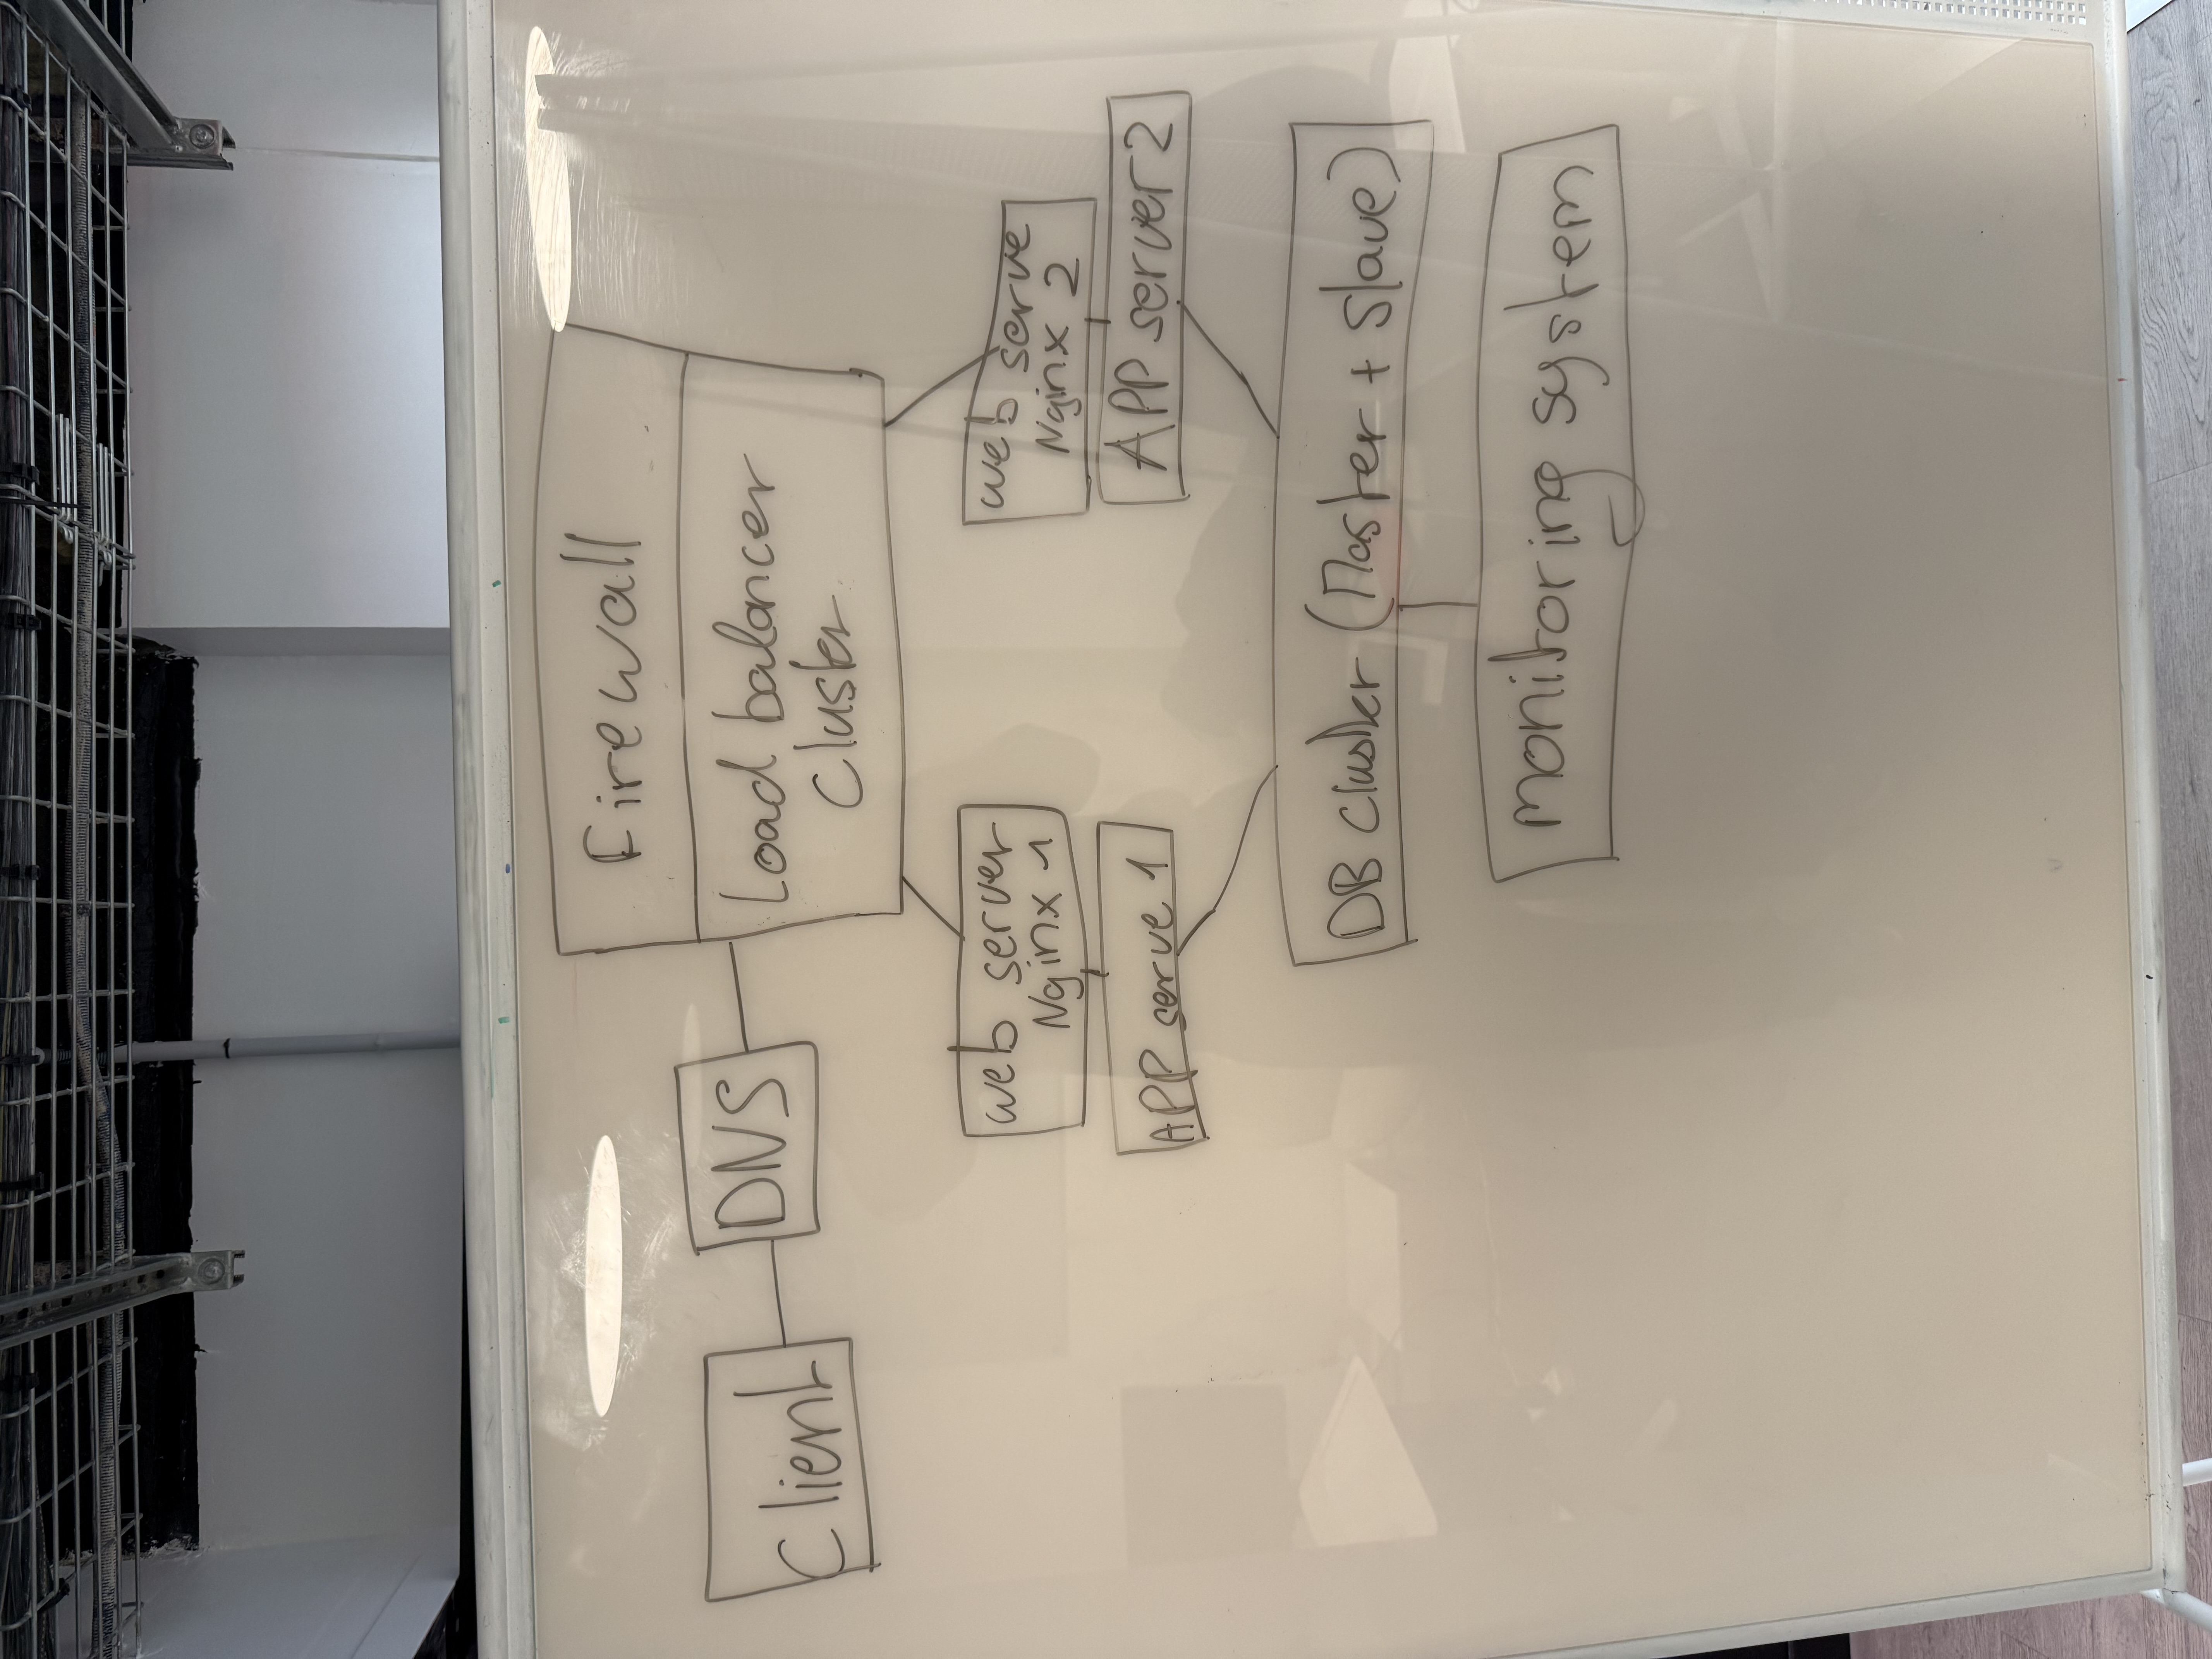 Firewall
Client
DNS
Load balancer
Cluster
web server
Nginx 1
web serve
Nginx 2
APP serve 1
APP server 2
DB cluster (Master + Slave)
monitoring system